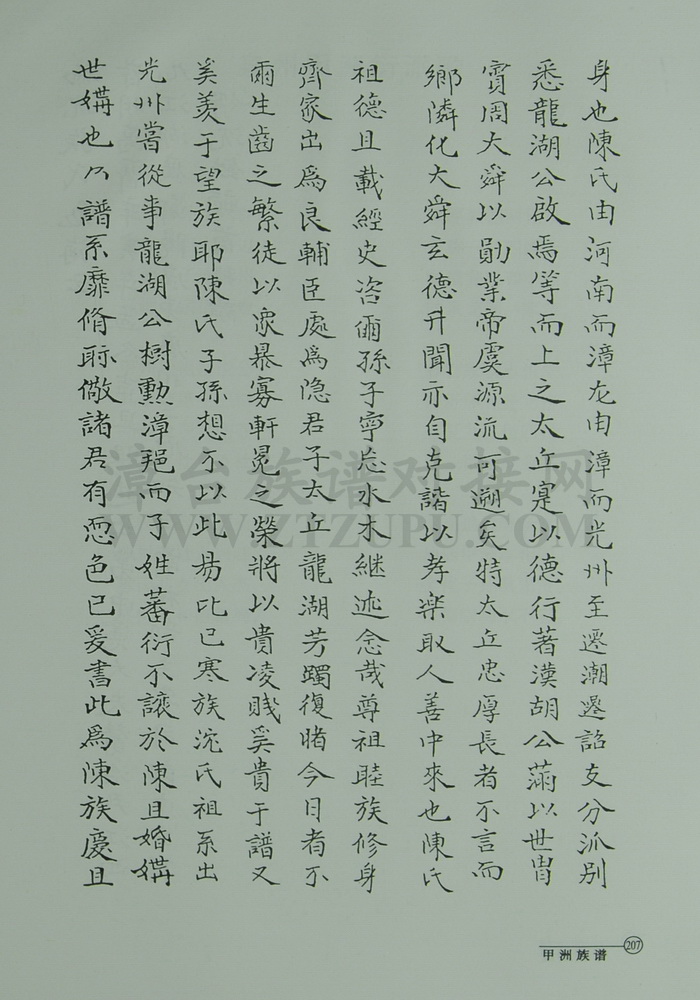 身也陳氏由河南而漳龙由漳而光州至遷潮遷詔支分派別
悉龍湖公啟焉等而上之太丘寔以德行著漢胡公滿以世胄
賓周大舜以勛業帝虞源流可遡矣特太丘忠厚長者不言而
鄉隣化大舜玄德升聞亦自克諧以孝樂取人善中來也陳氏
祖德且載經史咨爾孫子寧忘水木継迹念哉尊祖睦族修身
齊家出為良輔臣處為隐君子太丘龍湖芳躅復睹今日者不
爾生齒之繁徒以衆暴寡軒冕之榮將以貴凌賤奚貴于譜又
奚羡于望族耶陳氏子孫想不以此易比已寒族沈氏祖系出
光州嘗從事龍湖公樹勲漳𫑡而子姓蕃衍不讓於陳且婚媾
世媾也乃譜系靡脩聆儆諸君有恧色已爰書此為陳族慶且
漳台族谱对接网
WWW.ZTZUPU.COM
甲洲族谱
207